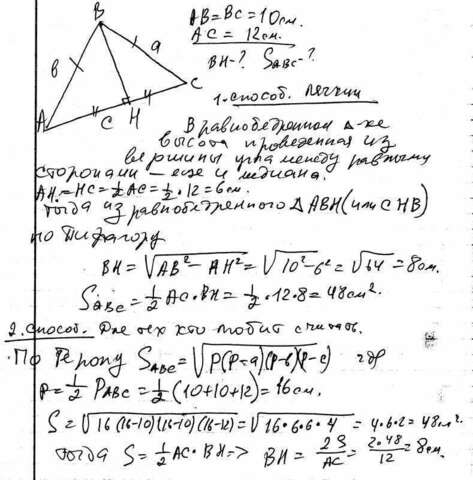 B
AB=BC=10см.
AC=12см.
BH-? S_ABC-?
в
a
A
C
H
C
1.способ. Легкий
В равнобедренном Δ-ке
высота проведенная из
вершины угла между равными
сторонами – еще и медиана.
AH=HC=½AC=½·12=6см.
тогда из равнобедренного ΔABH(или CHB)
по Пифагору
BH=√(AB²-AH²)=√(10²-6²)=√64=8см.
S_ABC=½AC·BH=½·12·8=48см².
2.способ. Для тех кто любит считать.
По Герону S_ABC=√(P(P-a)(P-в)(P-c) где
P=½P_ABC=½(10+10+12)=16см.
S=√(16(16-10)(16-10)(16-12))=√(16·6·6·4)=4·6·2=48м².
тогда S=½AC·BH=> BH=2S/AC=2·48/12=8см.